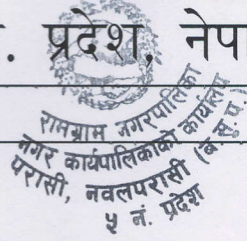 . प्रदेश, नेपा
रामग्राम नगरपालिका
नगर कार्यपालिकाको कार्यालय
परासी, नवलपरासी (ब.सु.प.)
५ नं. प्रदेश